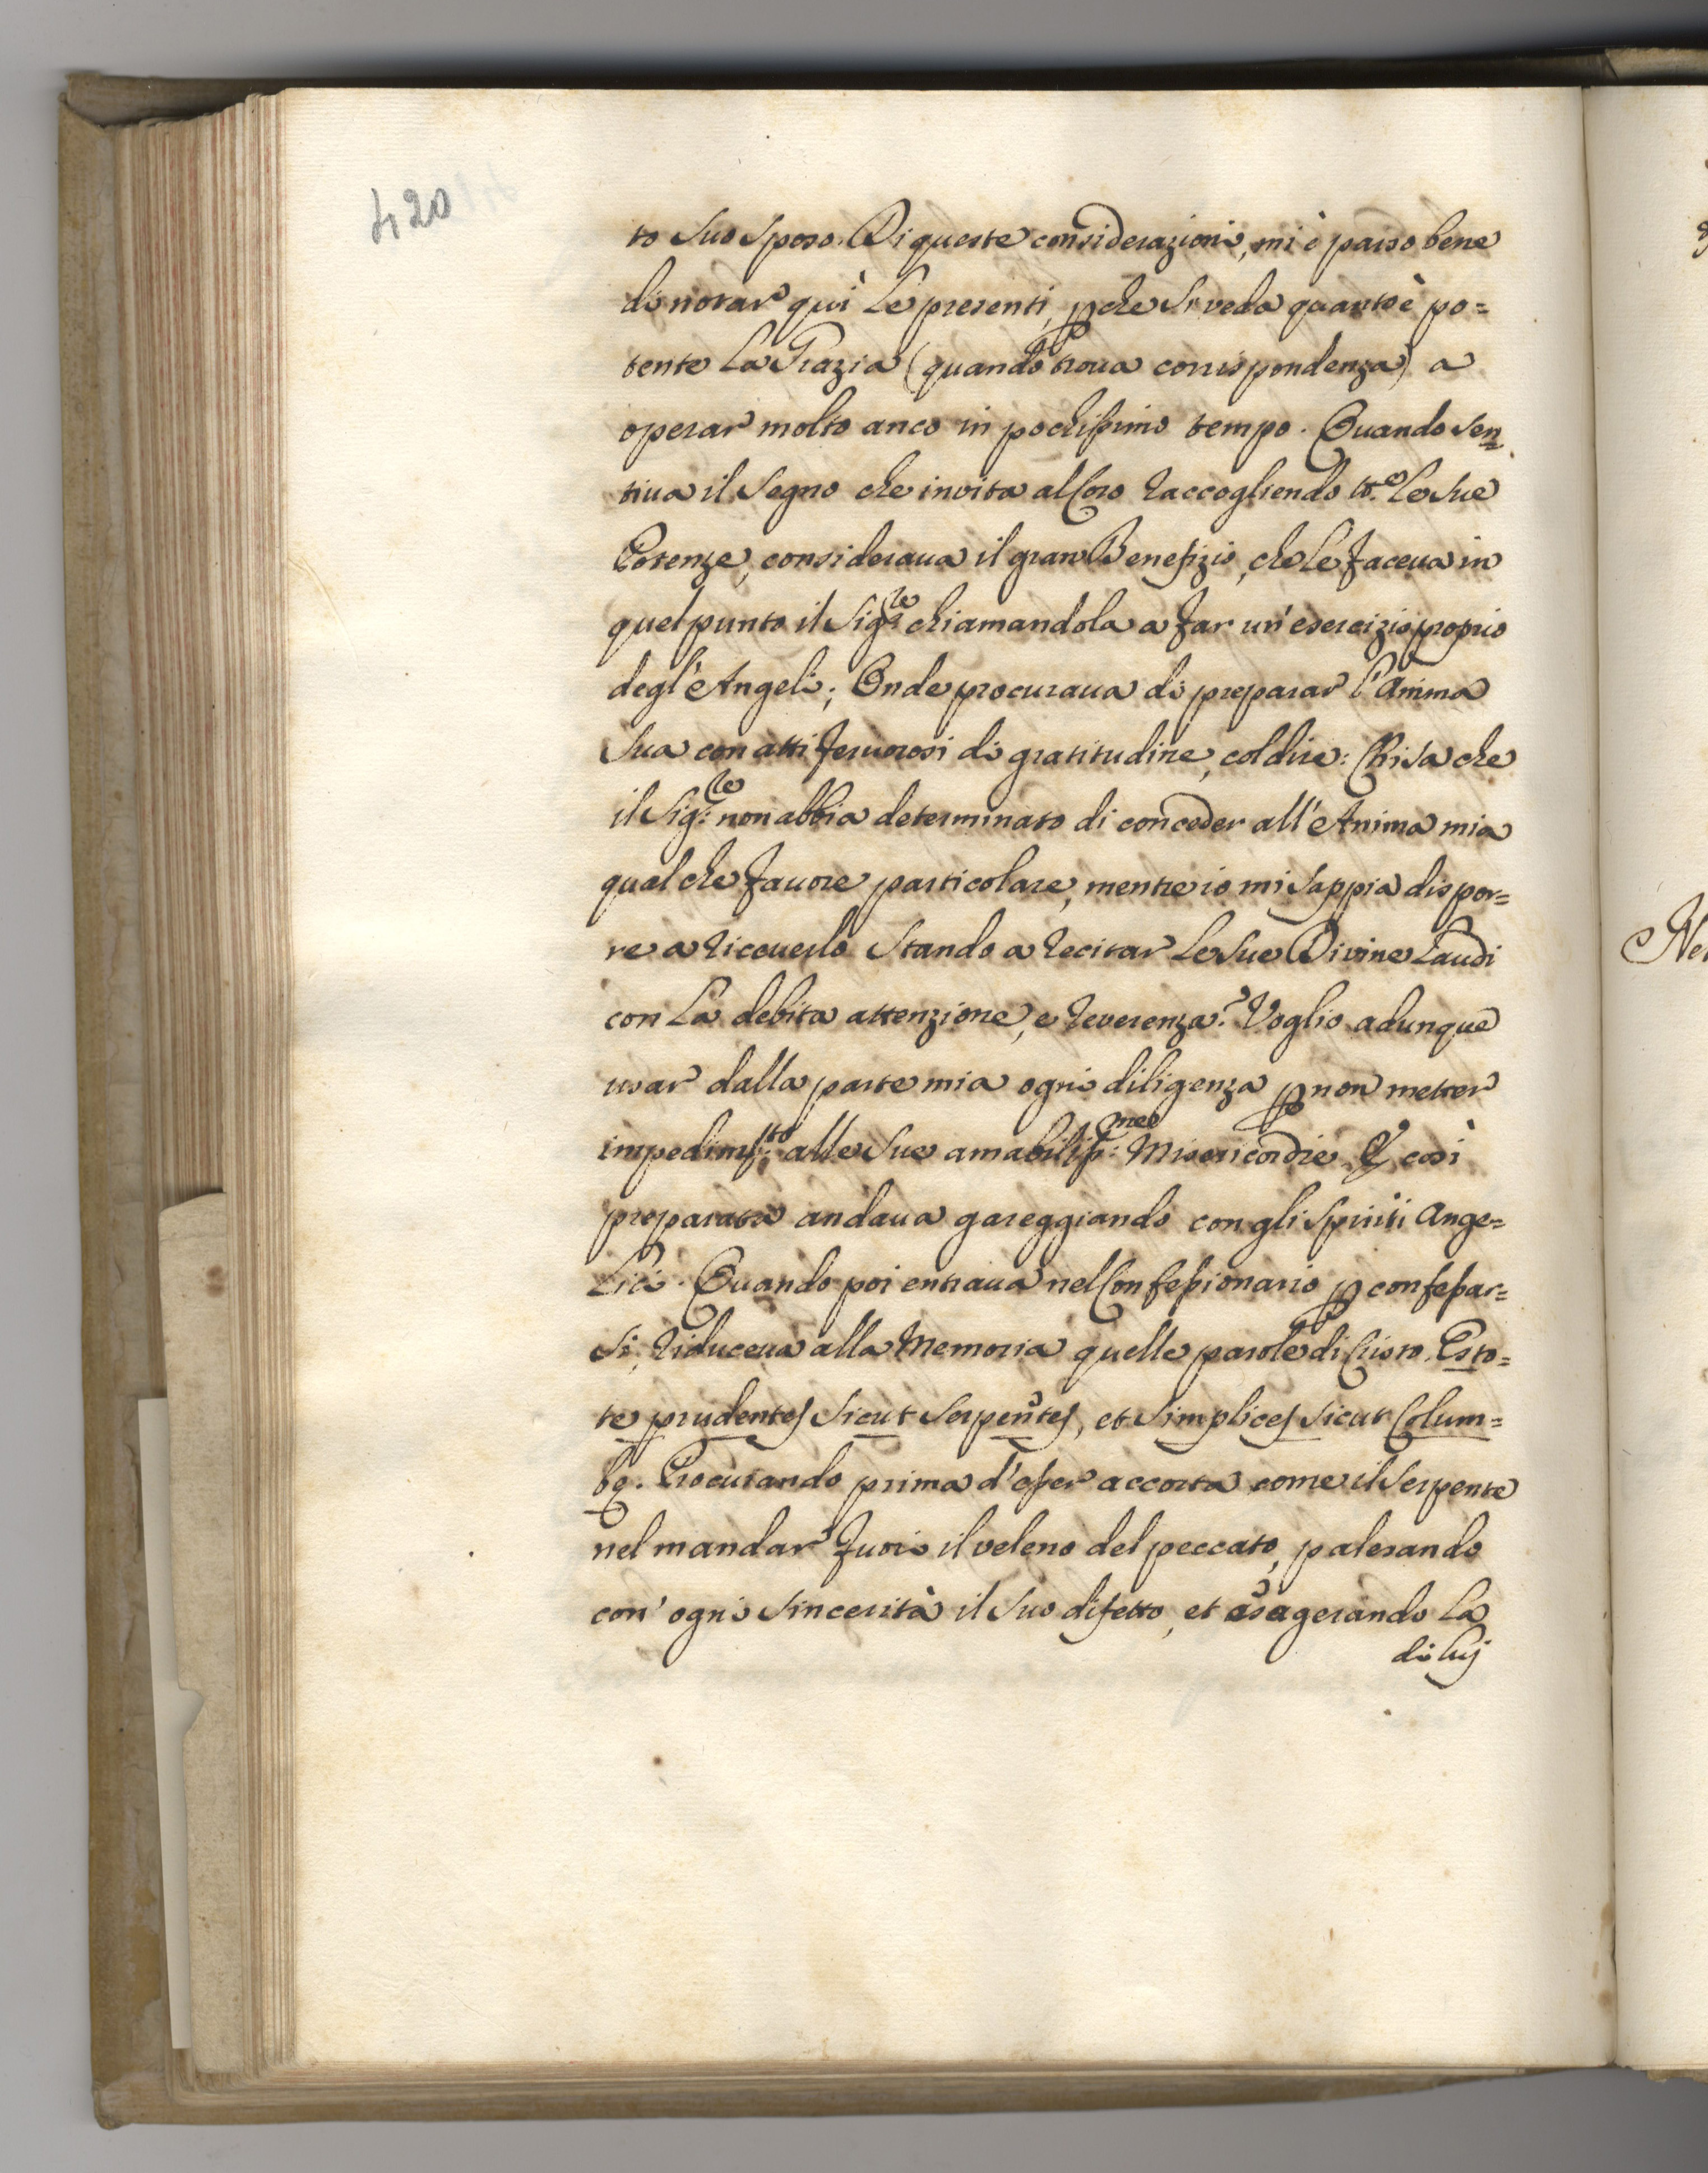 420
to suo Sposo. Di queste considerazioni, mi è parso bene
di notar quì le presenti, pche si veda quanto è po=
tente la Grazia (quando troua corrispondenza) a
operar molto anco in pochissimo tempo. Quando sen=
tiua il segno che invita al Coro raccogliendo tte le sue
Potenze, consideraua il gran Benefizio, che le faceua in
quel punto il Sig:re chiamandola a far un' esercizio proprio
degl'Angeli; Onde procuraua di preparar l'Anima
sua con atti feruorosi di gratitudine, col dire: Chi sa che
il Sig:re non abbia determinato di conceder all'Anima mia
qualche fauore particolare, mentre io mi sappia dispor=
re a riceuerlo stando a recitar le sue Divine Laudi
con la debita attenzione, e reverenza? Voglio adunque
usar dalla parte mia ogni diligenza p non metter
impedim:to alle sue amabiliss:me Misericordie. E così
preparata andaua gareggiando con gli Spiriti Ange=
lici. Quando poi entraua nel Confessionario p confessar=
si, riduceua alla Memoria quelle parole di Cristo. Esto=
te prudentes sicut serpentes, et simplices sicut Colum=
bę. Procurando prima d'esser accorta come il Serpente
nel mandar fuori il veleno del peccato, palesando
con' ogni sincerità il suo difetto, et esagerando la
di lui
Ne